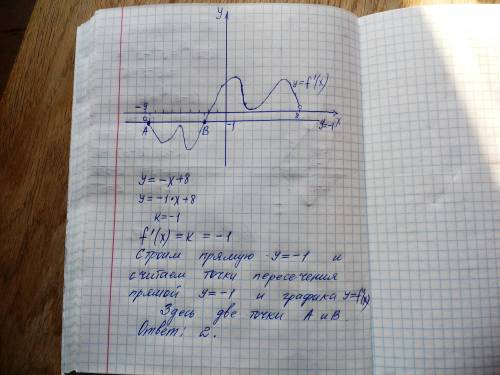 y
y=f'(x)
-9
8
x
A
B
-1
y=-1
y=-x+8
y=-1·x+8
k=-1
f'(x)=k=-1
Строим прямую y=-1 и
считаем точки пересечения
прямой y=-1 и графика y=f'(x)
Здесь две точки А и В
Ответ: 2.